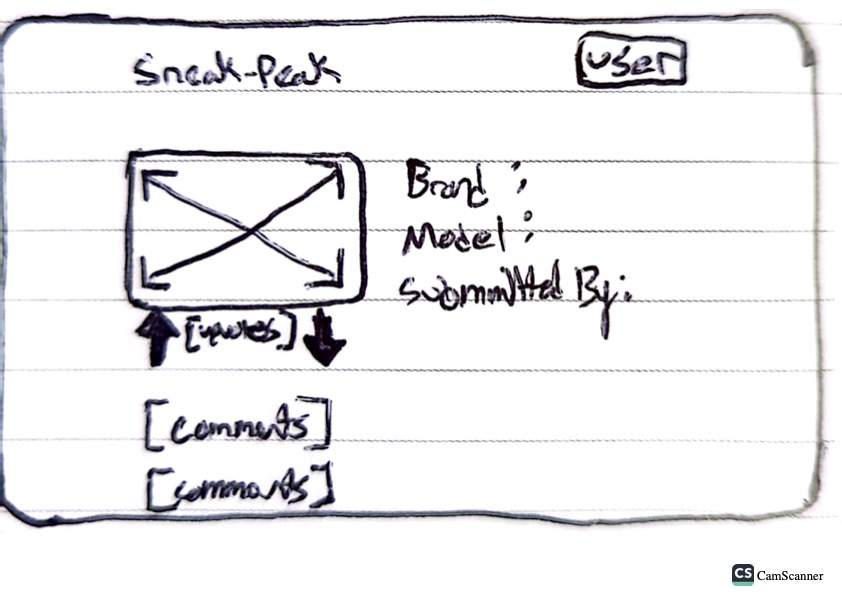 Sneak-Peak
user
Brand :
Model :
Submitted By:
[upvotes]
[comments]
[comments]
CS CamScanner